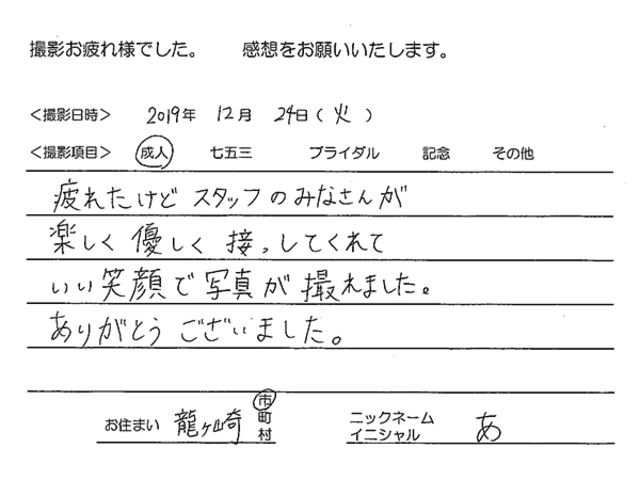 撮影お疲れ様でした。 感想をお願いいたします。
＜撮影日時＞ 2019年 12月 24日(火)
＜撮影項目＞ 成人 七五三 ブライダル 記念 その他
疲れたけど スタッフのみなさんが
楽しく 優しく 接っしてくれて
いい笑顔で写真が撮れました。
ありがとうございました。
お住まい 龍ヶ崎 市町村 ニックネーム イニシャル あ